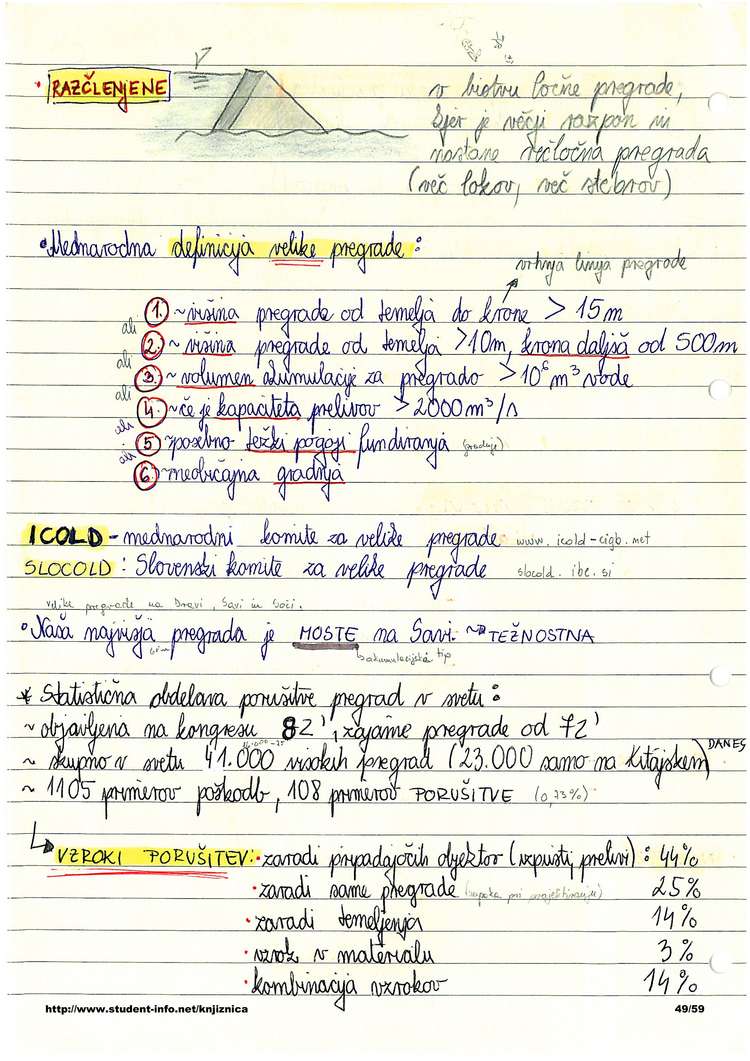 • RAZČLENJENE
v bistvu ločne pregrade,
kjer je večji razpon in
nastane večločna pregrada
(več lokov, več stebrov)
• Mednarodna definicija velike pregrade:
vrhnja linija pregrade
1. ~ višina pregrade od temelja do krone > 15m
ali
2. ~ višina pregrade od temelja > 10m, krona daljša od 500m
ali
3. ~ volumen akumulacije za pregrado > 10⁶ m³ vode
ali
4. ~ če je kapaciteta prelivov > 2000 m³/s
ali
5 ~ posebno težki pogoji fundiranja (gradnje)
ali
6. ~ neobičajna gradnja
ICOLD - mednarodni komite za velike pregrade www.icold-cigb.net
SLOCOLD: Slovenski komite za velike pregrade slocold.ibe.si
velike pregrade na Dravi, Savi in Soči.
• Naša najvišja pregrada je MOSTE na Savi. ~> TEŽNOSTNA
akumulacijski tip
* Statistična obdelava porušitve pregrad v svetu:
~ objavljena na kongresu 82', zajame pregrade od 72'
~ skupno v svetu 41.000 visokih pregrad (23.000 samo na Kitajskem) DANES
~ 1105 primerov poškodb, 108 primerov PORUŠITVE (0,23%)
VZROKI PORUŠITEV: • zaradi pripadajočih objektov (izpusti, prelivi): 44%
• zaradi same pregrade (napaka pri projektiranju) 25%
• zaradi temeljenja 14%
• vzrok v materialu 3%
• kombinacija vzrokov 14%
http://www.student-info.net/knjiznica 49/59